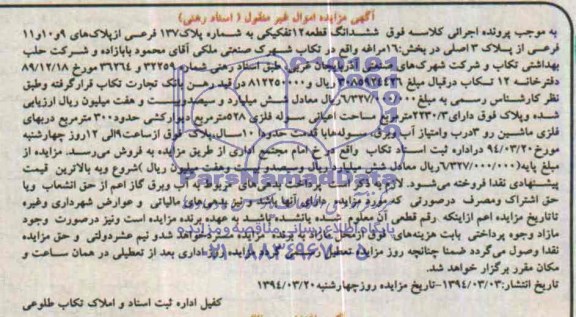 آگهی مزایده اموال غیر منقول ( اسناد رهنی)
به موجب پرونده اجرائی کلاسه فوق ششدانگ قطعه۱۲تفکیکی به شماره پلاک۱۳۷ فرعی ازپلاک‌های ۹و۱۰و۱۱
فرعی از پلاک ۳ اصلی در بخش:۱۶مراغه واقع در تکاب شهرک صنعتی ملکی آقای محمود بابازاده و شرکت حلب
بهداشتی تکاب و شرکت شهرک‌های غربی طبق اسناد رهنی شماره ۳۲۲۵۹ و ۳۶۲۶۴ مورخ ۸۹/۱۲/۱۸
دفترخانه ۱۲ تکاب درقبال مبلغ ریال و ۸۱۲۲۵۰۰۰۰ در قید رهن بانک تجارت تکاب قرارگرفته وطبق
نظر کارشناس رسمی به مبلغ ۶/۳۲۷/۰۰۰/۰۰۰ریال معادل شش میلیارد و سیصدوبیست و هفت میلیون ریال ارزیابی
شده وپلاک فوق دارای۲۲۳۰/۳مترمربع مساحت اعیانی سوله فلزی ۵۲۸مترمربع دیوارکشی حدود۳۰۰ مترمربع دربهای
فلزی ماشین رو ۳درب وامتیاز آب وبرق سوله‌هابا قدمت حدود۱۰سال،پلاک فوق ازساعت۹الی ۱۲روز چهارشنبه
مورخ۹۴/۰۳/۲۰ دراداره ثبت اسناد تکاب واقع امام مجتمع اداری از طریق مزایده به فروش می‌رسد. مزایده از
مبلغ پایه(۶/۳۲۷/۰۰۰/۰۰۰ریال معادل شش میلیارد ریال وسیصد وبیست وهفت میلیون ریال )شروع وبه بالاترین قیمت
پیشنهادی نقدا فروخته می‌شود. لازم به ذکر است پرداخت بدهی‌های مربوط به آب وبرق گاز اعم از حق انشعاب ویا
حق اشتراک ومصرف درصورتی که مورد مزایده دارای آنها باشد ونیز بدهی‌های مالیاتی و عوارض شهرداری وغیره
تاتاریخ مزایده اعم ازاینکه رقم قطعی آن معلوم شده یانشده باشد به عهده برنده مزایده است ونیز درصورت وجود
مازاد وجوه پرداختی بابت هزینه‌های فوق ازمحل مازاد به برنده مزایده مسترد خواهد شدو نیم عشردولتی و حق مزایده
نقدا وصول می‌گردد ضمنا چنانچه روز مزایده تعطیل رسمی گردد مزایده روزاداری بعد از تعطیلی در همان ساعت و
مکان مقرر برگزار خواهد شد.
تاریخ انتشار:۱۳۹۴/۰۳/۰۳-تاریخ مزایده روزچهارشنبه۱۳۹۴/۰۳/۲۰
کفیل اداره ثبت اسناد و املاک تکاب طلوعی
ParsNamadData
پایگاه اطلاع رسانی مناقصه ومزایده
۰۲۱-۸۸۳۴۹۶۷۰-۵